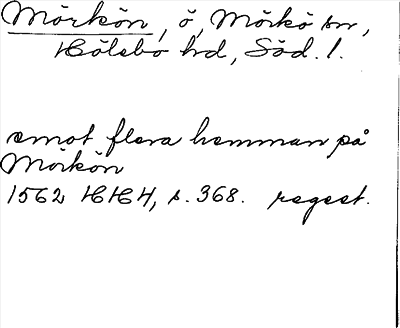 Mörkön, ö, Mörkö sn,
Hölebo hd, Söd. l.
emot flera hemman på
Mörkön
1562 HH4, s. 368. regest.